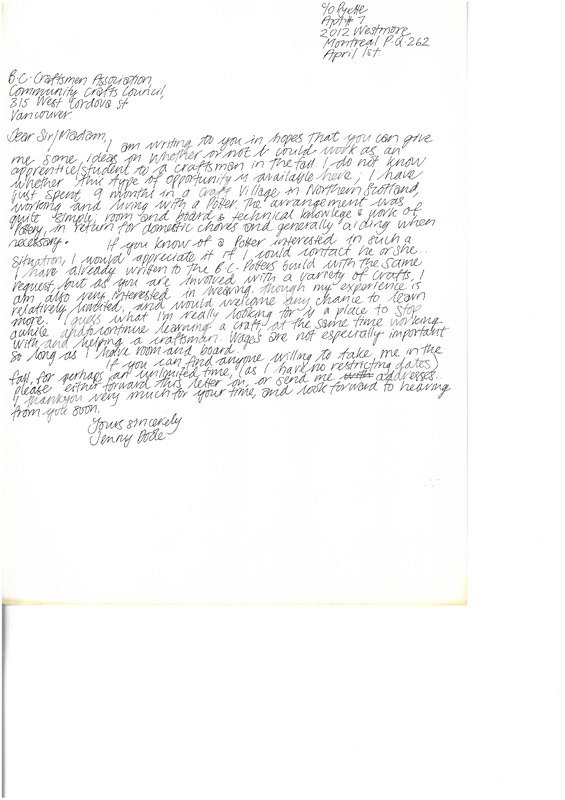 c/o Pyette
Apt # 7
2012 Westmore
Montreal P.Q 262
April 1st.
B.C. Craftsmen Association,
Community Crafts Council,
315 West Cordova St
Vancouver.
Dear Sir/Madam,
I am writing to you in hopes that you can give
me some ideas on whether or not I could work as an
apprentice/student to a craftsman in the fall. I do not know
whether this type of opportunity is available here; I have
just spent 9 months in a craft village in Northern Scotland,
working and living with a Potter. The arrangement was
quite simple; room and board & technical knowlege & work of
Pottery, in return for domestic chores and generally aiding when
necessary.
If you know of a Potter interested in such a
situation, I would appreciate it if I could contact he or she..
I have already written to the B.C. Potters Guild with the same
request, but as you are involved with a variety of Crafts, I
am also very interested in weaving though my experience is
relatively limited, and would welcome any chance to learn
more. I guess what I'm really looking for is a place to stop
awhile and continue learning a craft at the same time working
with and helping a craftsman. Wages are not especially important
so long as I have room and board.
If you can find anyone willing to take me in the
fall, for perhaps an unlimited time, (as I have no restricting dates)
please either forward this letter on, or send me addresses.
I thankyou very much for your time, and look forward to hearing
from you soon.
Yours sincerely
Jenny Dode